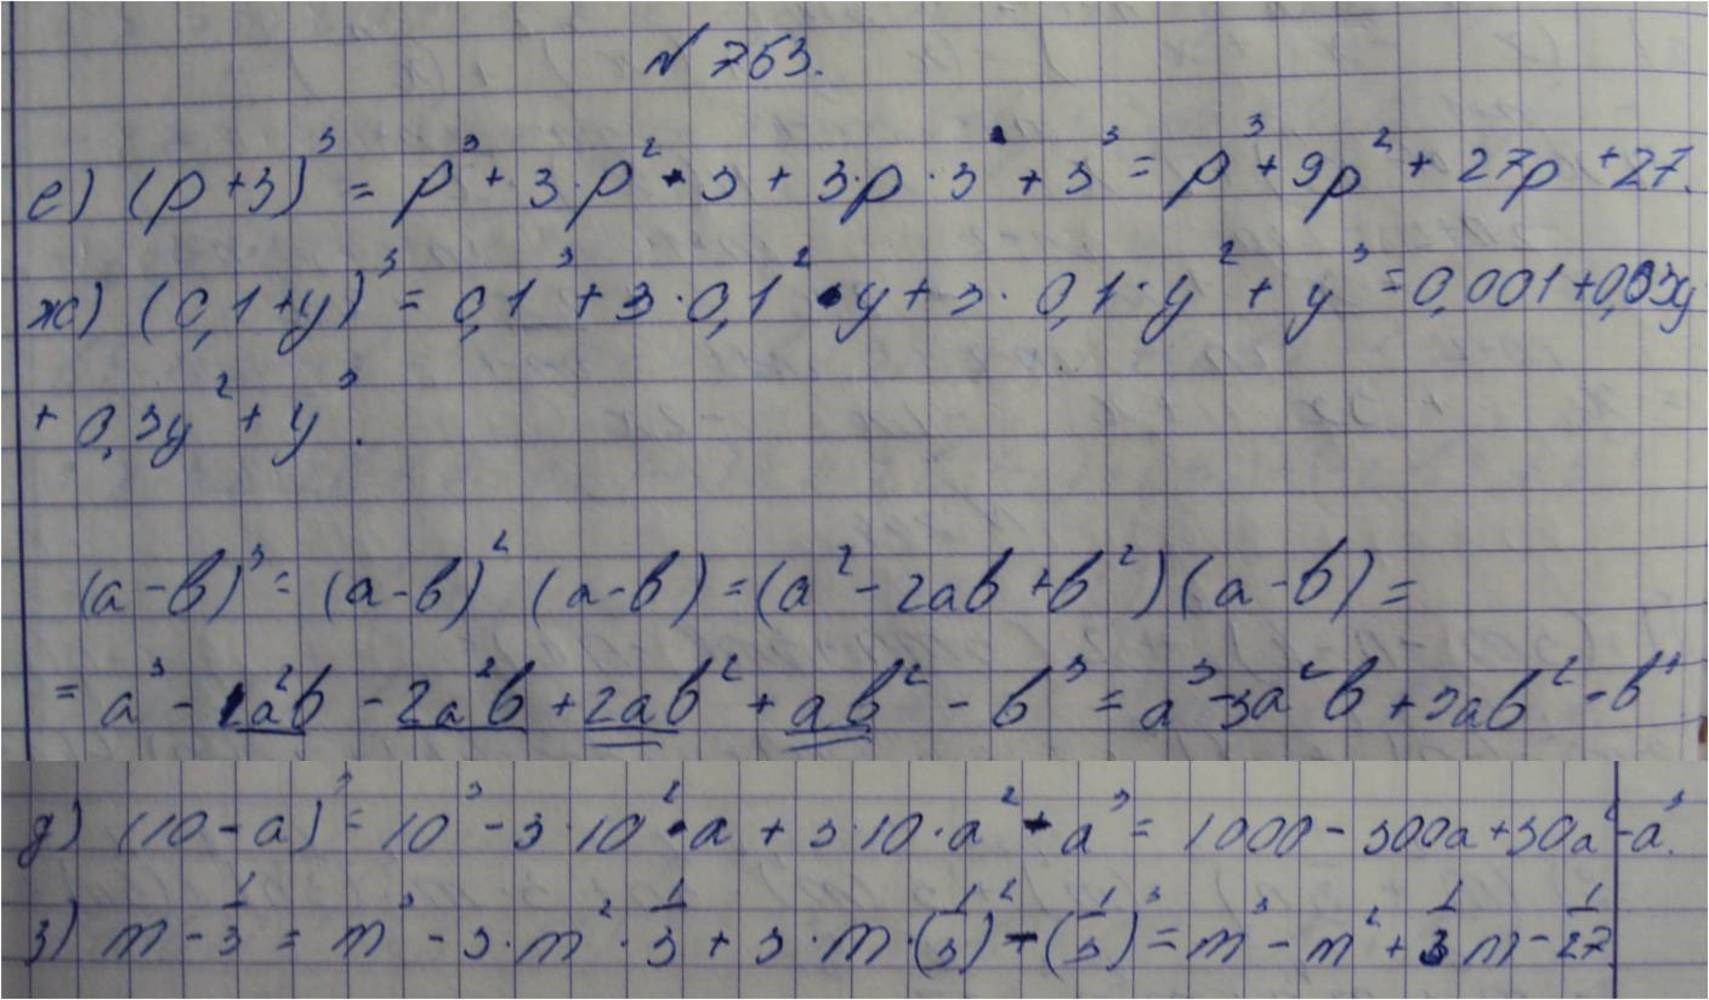 № 753.
е) (p+3)³ = p³ + 3·p²·3 + 3·p·3² + 3³ = p³ + 9p² + 27p + 27.
ж) (0,1+y)³ = 0,1³ + 3·0,1²·y + 3·0,1·y² + y³ = 0,001 + 0,03y
+ 0,3y² + y³.
(a-b)³ = (a-b)² (a-b) = (a² - 2ab + b²)(a-b) =
= a³ - 1a²b - 2a²b + 2ab² + ab² - b³ = a³ - 3a²b + 3ab² - b³
д) (10-a)³ = 10³ - 3·10²·a + 3·10·a² - a³ = 1000 - 300a + 30a² - a³.
з) m - 1/3 = m³ - 3·m²·1/3 + 3·m·(1/3)² - (1/3)³ = m³ - m² + 1/3 m - 1/27